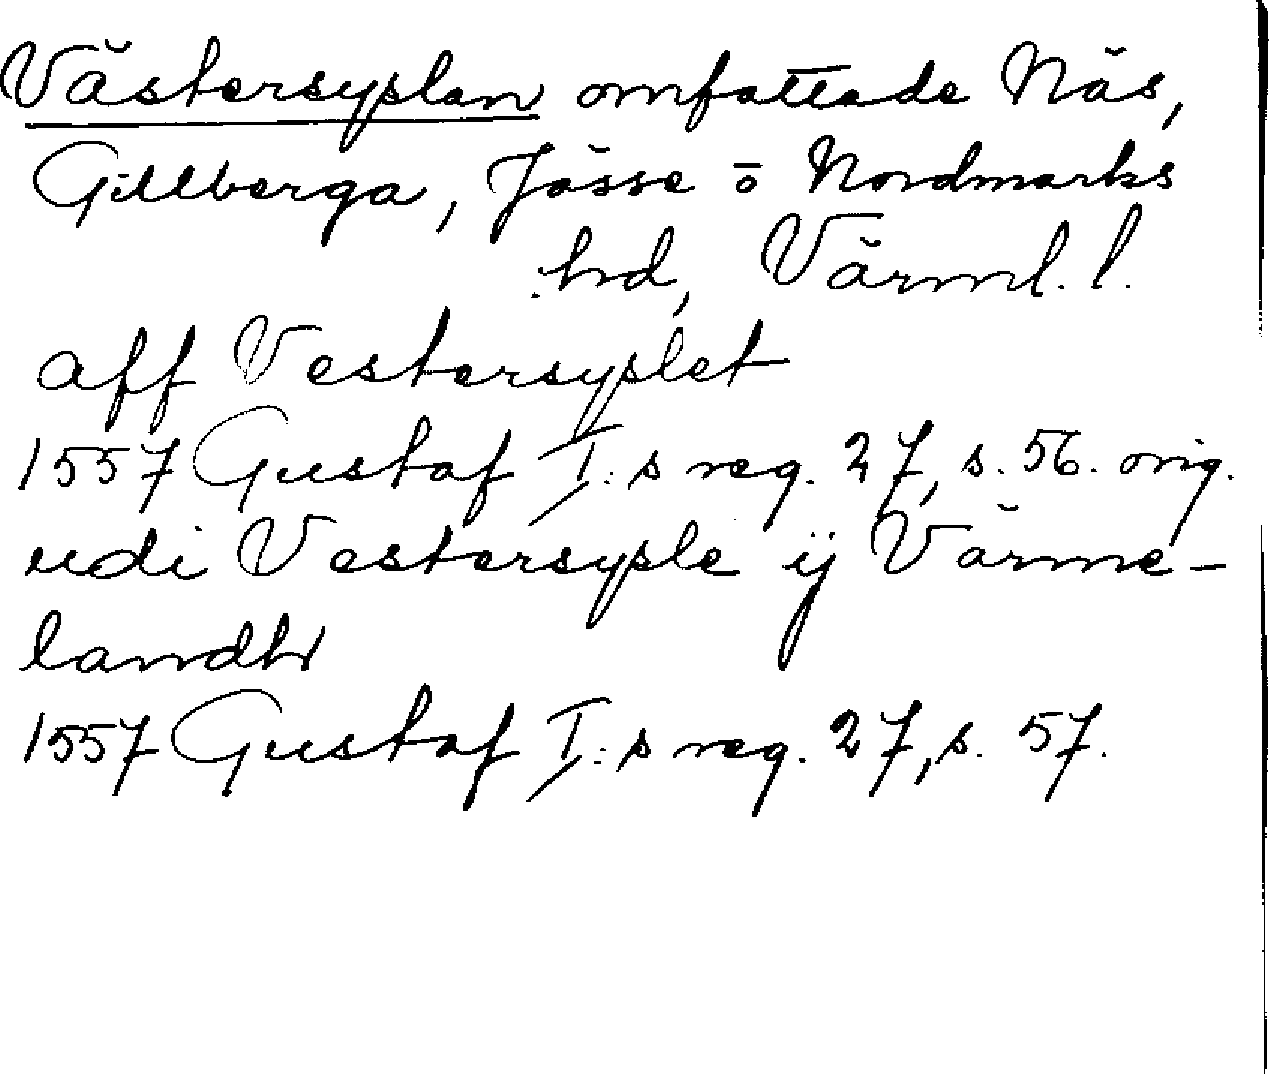 Västersyslan omfattade Näs,
Gillberga, Jösse o Nordmarks
hd, Värml. l.
aff Vestersyslet
1557 Gustaf I:s reg. 27, s. 56. orig.
udi Vestersysle ij Värme-
landh
1557 Gustaf I:s reg. 27, s. 57.